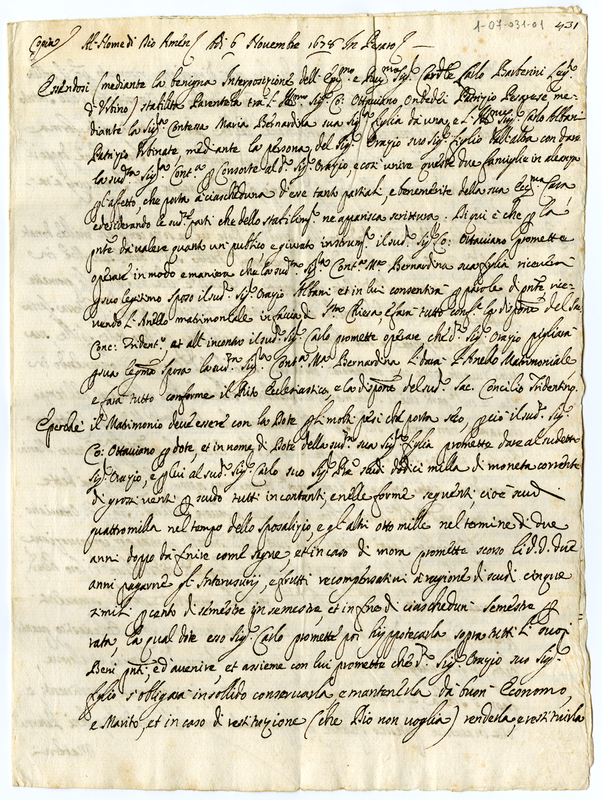 1-07-031-01 431
Copia Al Nome di Dio Amen Adi 6 Novembre 1678 In Pesaro
Essendosi (mediante la benigna Interposizione dell' Em.mo e Rev.mo Sig.r Card.le Carlo Barberini Leg.
d'Urbino) stabilito Parentela tra l' Ill.mo Sig.r Co: Ottaviano Ondedei Patrizio Pesarese me-
diante la Sig.ra Contessa Maria Bernardina sua Sig.ra figlia da una, e l' Ill.mo Sig.r Carlo Albani
Patrizio Urbinate mediante la persona del Sig.r Orazio suo Sig.r figlio dall'altra con dare
la sud.ta Sig.ra Cont.a p Consorte al d.o Sig.r Orazio, e così unire queste due famiglie in
p l'affetto, che porta à ciascheduna d'esse tanto partiali, e benemerite della sua Ecc.ma Casa
e desiderando le sud.e parti che dello stabilim.to ne apparisca scrittura. Di qui è che p la
pnte da valere quanto un publico e giurato instrum.to il sud.o Sig.r Co: Ottaviano promette
operare in modo e maniera che la sud.ta Sig.ra Cont.a M.a Bernardina sua figlia riceverà
p suo legitimo sposo il sud.o Sig.r Orazio Albani et in lui consentirà p parole d pnte rice-
vendo l' Anello matrimoniale in facie S.te Chiesa e farà tutto conf.e la dispone del Sac.
Conc: Trident.o et all' incontro il sud.o Sig.r Carlo promette operare che d.o Sig.r Orazio pigliarà
p sua legma sposa la sud.ta Sig.ra Cont.a M.a Bernardina, e darà l' Anello Matrimoniale
e farà tutto conforme il Rito Ecclesiastico, e la dispone del sud.o Sac. Concilio Tridentino.
E perche il Matrimonio deve essere con la Dote p li molti pesi che porta seco, p ciò il sud.o Sig.r
Co: Ottaviano p dote, et in nome di Dote della sud.ta sua Sig.ra figlia promette dare al sudetto
Sig.r Orazio, e p lui al sud.o Sig.r Carlo suo Sig.r Pre scudi dodici milla di moneta corrente
di grossi venti p scudo tutti in contanti, e nelle forme seguenti, cioè scudi
quattromilla nel tempo dello sposalizio e gl' altri otto mille nel termine di due
anni doppo da finire come segue et in caso di mora promette scorsi li d.d. due
anni pagarne gl' Interusurij, e frutti recompensativi à ragione di scudi cinque
simili p cento di semestre in semestre et in fine di ciaschedun semestre p
rata, la qual dote esso Sig.r Carlo promette poi hippotecarla sopra tutti li suoi
Beni pnti, ed avenire, et assieme con lui promette che d.o Sig.r Orazio suo Sig.r
figlio s'obligarà in solido conservarla e mantenerla da buon Economo,
e Marito, et in caso di restituzione (che Dio non voglia) renderla, e restituirla